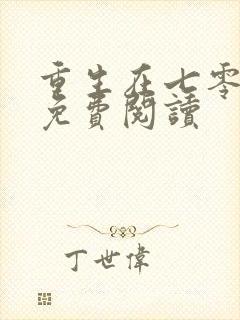 重生在七零
免費閱讀
丁世偉